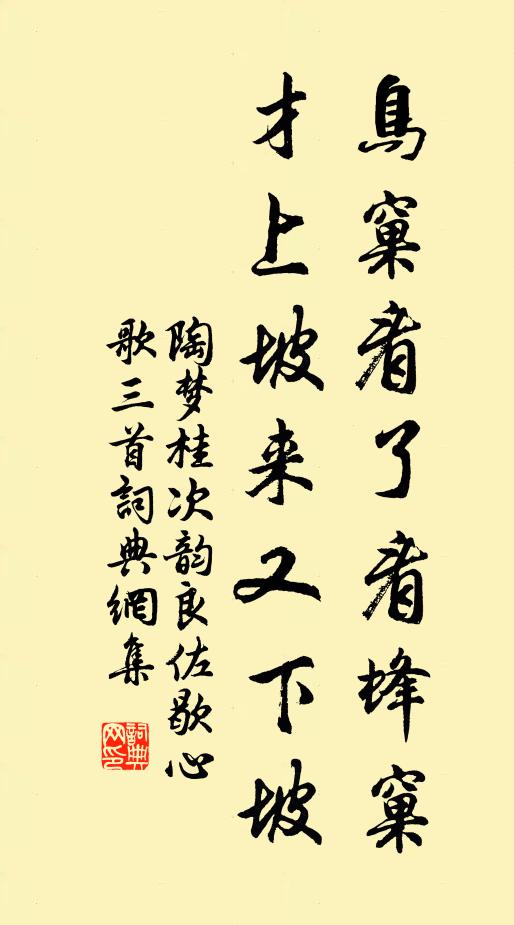 鳥窠看了看蜂窠
才上坡来又下坡
陶梦桂次韵良佐歇心
歌三首詞典網集
詞典网印